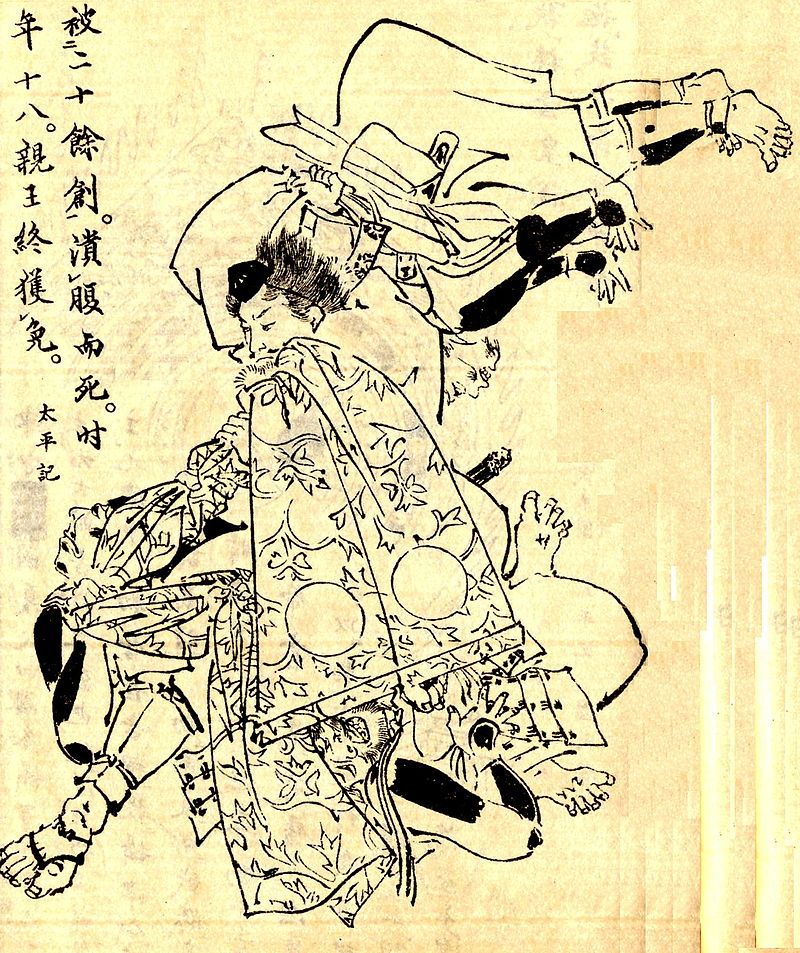 被㆓二十餘創㆒。潰㆑腹而死。时
年十八。親王終獲㆑免。
太平記